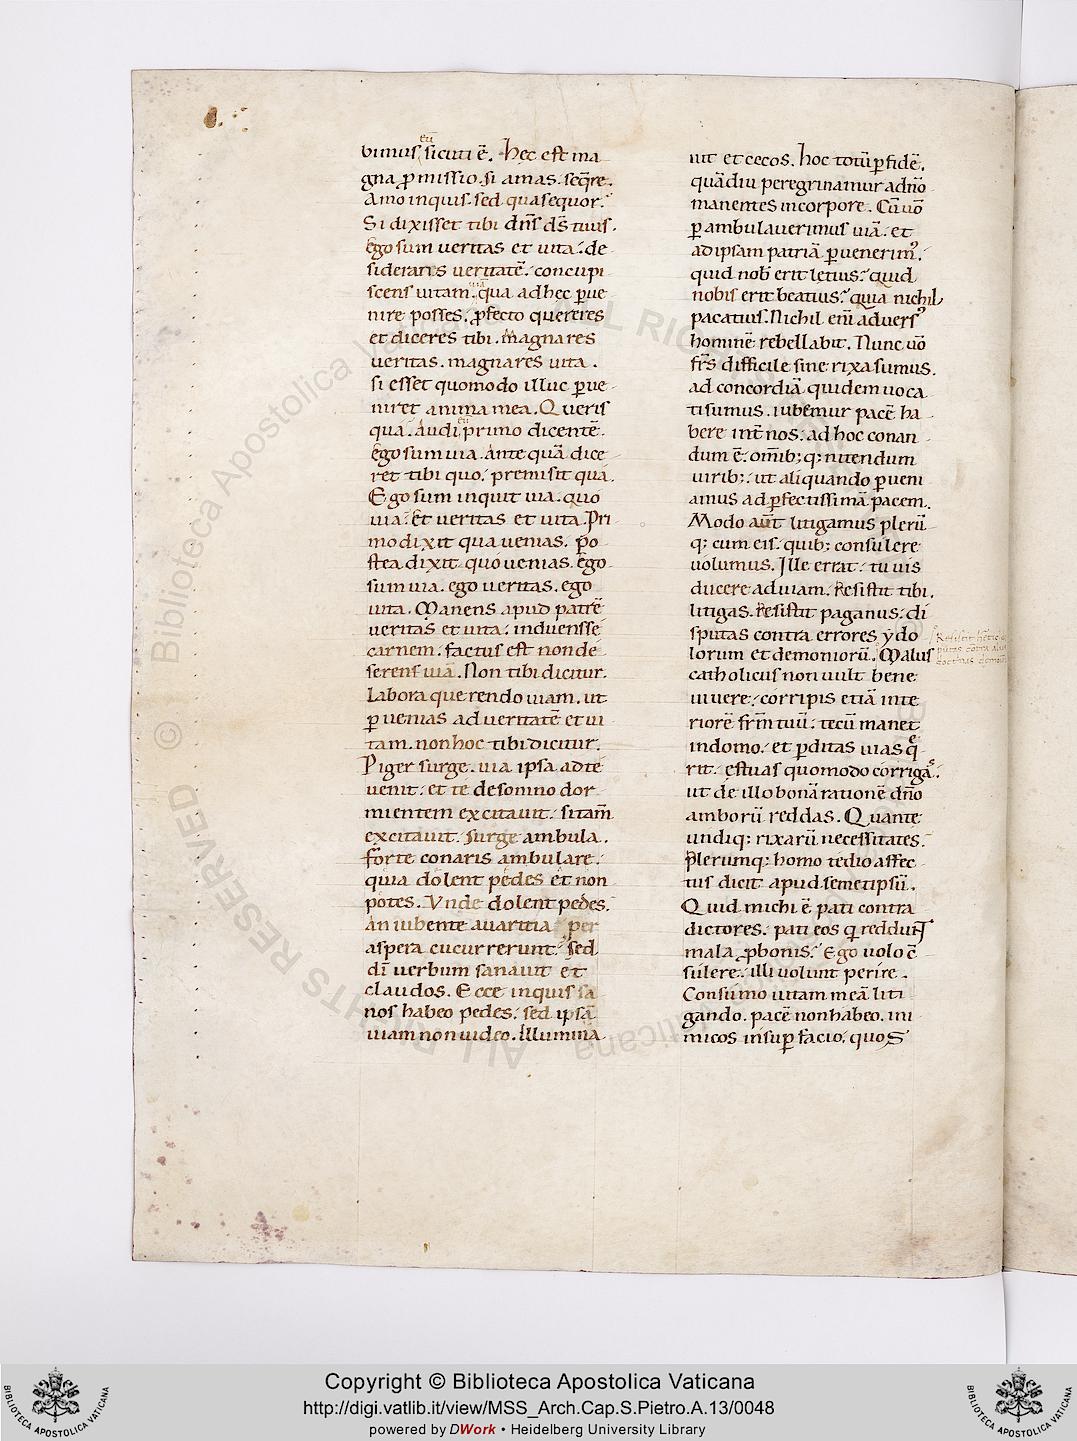 vimus eū sicuti ē. Hec est ma
gna ꝓmissio. si amas. seq̄re.
Amo inquis. sed qua sequor.
Si dixisset tibi dn̄s ds̄ tuus.
Ego sum veritas et vita. de
siderares veritatē. concupi
scens vitam. viā qua ad hec ꝑve
nire posses. ꝓfecto quereres
et diceres tibi. Magna res
veritas. magna res vita.
si esset quomodo illuc ꝑve
niret anima mea. Queris
qua. Audi eū primo dicentē.
Ego sum via. Ante quā dice
ret tibi quo. premisit qua.
Ego sum inquit via. quo
via. Et veritas et vita. Pri
mo dixit qua venias. po
stea dixit quo venias. Ego
sum via. ego veritas. ego
vita. Manens apud patrē
veritas et vita. induens se
carnem. factus est non de
serens viā. Non tibi dicitur.
labora querendo viam. ut
ꝑvenias ad veritatē et vi
tam. non hoc tibi dicitur.
Piger surge. via ipsa ad te
venit. et te de somno dor
mientem excitavit. si tam̄
excitavit. surge ambula.
forte conaris ambulare.
quia dolent pedes et non
potes. Unde dolent pedes.
An iubente avaritia per
aspera cucurrerunt. sed
dī verbum sanavit et
claudos. Ecce inquis sa
nos habeo pedes. sed ipsā
viam non video. Illumina
vit et cecos. hoc totū ꝑ fidē.
quādiu peregrinamur a dn̄o
manentes in corpore. Cū vo
ꝑambulaverimus viā. et
ad ipsam patriā ꝑvenerimꝰ.
quid nob̄ erit letius. quid
nobis erit beatius. quia nichil
pacatius. Nichil eni adversꝰ
hominē rebellabit. Nunc vo
frs̄ difficile sine rixa sumus.
ad concordiā quidem voca
ti sumus. iubemur pacē ha
bere int̄ nos. ad hoc conan
dum ē. omīb; q; nitendum
virib;. ut aliquando ꝑveni
amus ad ꝑfectissimā pacem.
Modo aūt litigamus plerū
q; cum eis. quib; consulere
volumus. Ille errat. tu vis
ducere ad viam. Resistit tibi.
litigas. Resistit paganus. di
sputas contra errores ydo
lorum et demoniorū. Malus
catholicus non vult bene
vivere. corripis etiā inte
riorē frm̄ tuū. tecū manet
in domo. et ꝑditas vias q̄
rit. estuas quomodo corrigāꝰ.
ut de illo bonā rationē dn̄o
amborū reddas. Quante
undiq; rixarū necessitates.
Plerumq; homo tedio affec
tus dicit apud semetipsū.
Quid michi ē pati contra
dictores. pati eos q̄ reddunt
mala ꝓ bonis. Ego volo cō
sulere. illi volunt perire.
Consumo vitam meā liti
gando. pacē non habeo. ini
micos insuꝑ facio. quos
Copyright © Biblioteca Apostolica Vaticana
http://digi.vatlib.it/view/MSS_Arch.Cap.S.Pietro.A.13/0048
powered by DWork • Heidelberg University Library
BIBLIOTECA APOSTOLICA VATICANA
BIBLIOTECA APOSTOLICA VATICANA
© Biblioteca Apostolica Vaticana ALL RIGHTS RESERVED